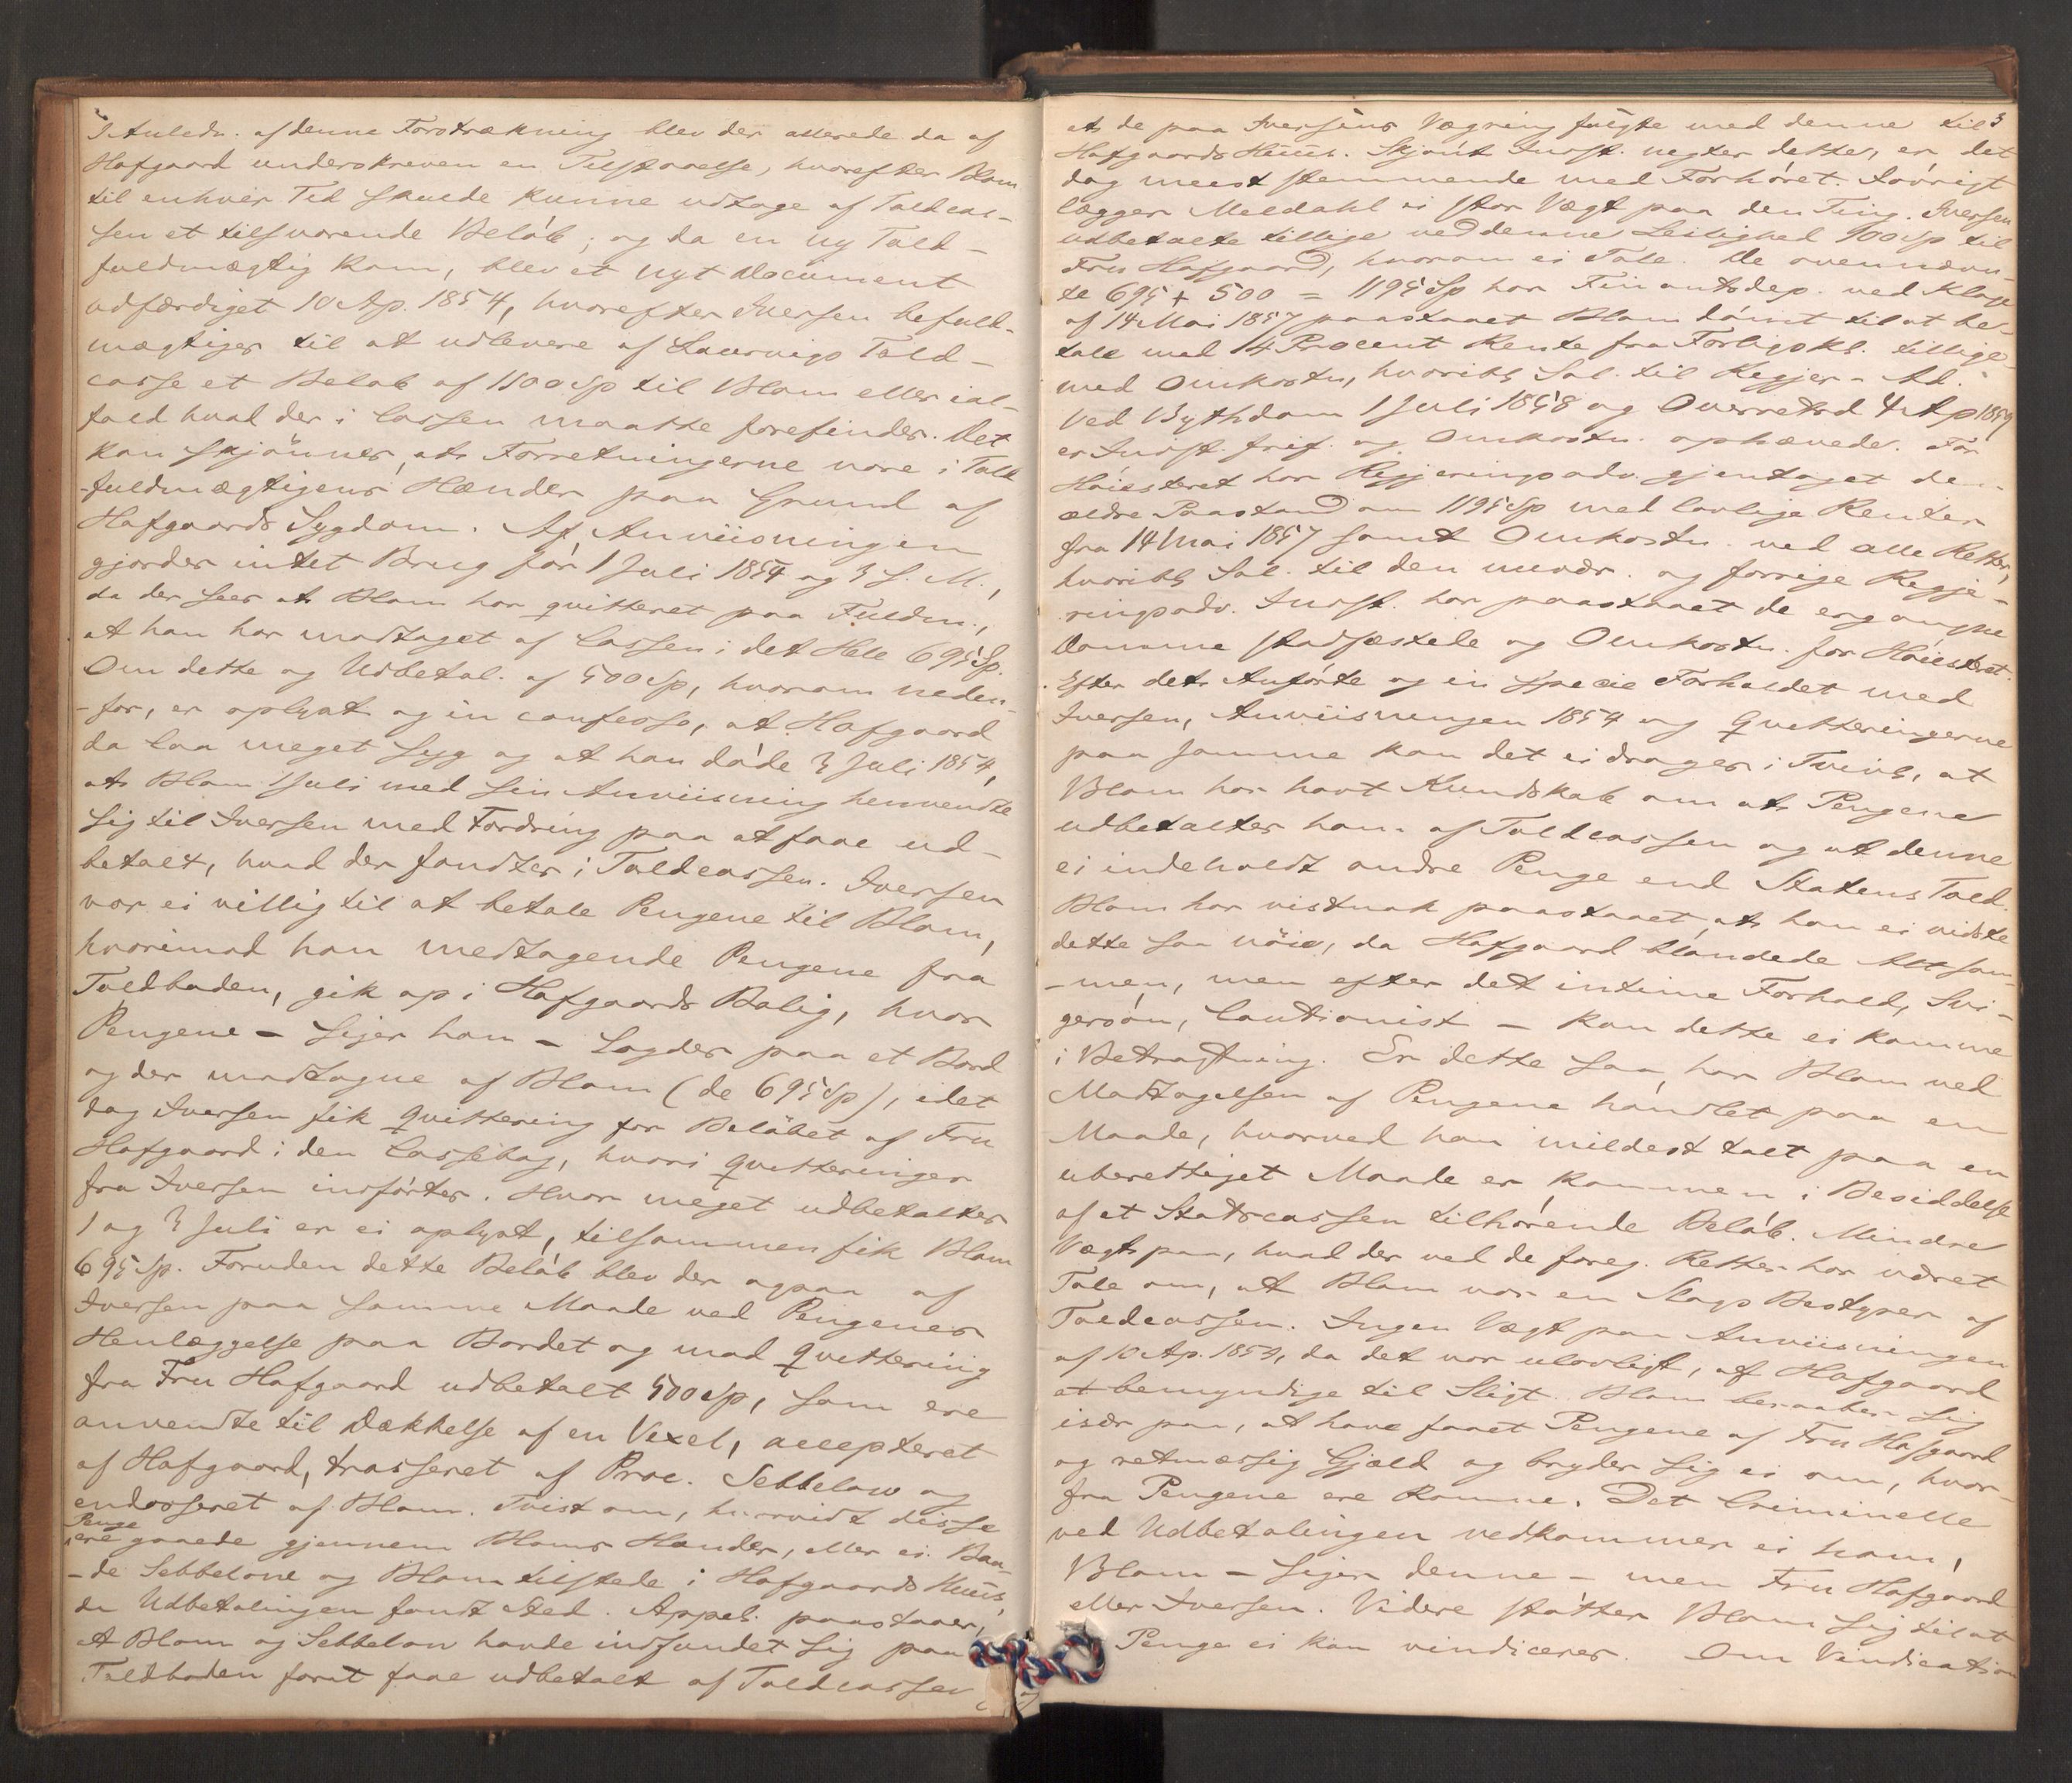 I Anledn. af denne Forstrækning blev der allerede da af
Hafgaard underskreven en Tilstaaelse, hvorefter Blom
til enhver Tid skulde kunne udtage af Toldcas-
sen et tilsvarende Beløb; og da en ny Told-
fuldmægtig kom, blev et nyt Document
udfærdiget 10 Ap. 1854, hvorefter Iversen befuld-
mægtiges til at udlevere af Laurvigs Told-
casse et Beløb af 1100 Sp til Blom eller ial-
fald hvad der i Cassen maatte forefindes. Det
kan skjønnes, at Forretningerne vare i Told-
fuldmægtigens Hænder paa Grund af
Hafgaards Sygdom. Af Anviisningen
gjordes intet Brug før 1 Juli 1854 og 3 s. M.,
da der sees at Blom har qvitteret paa Fuldm.,
at han har modtaget af Cassen i det Hele 695 Sp.
Om dette og Udbetal. af 500 Sp, hvorom neden-
for, er oplyst og in confesso, at Hafgaard
da laa meget syg og at han døde 3 Juli 1854,
at Blom 1 Juli med sin Anviisning henvendte
sig til Iversen med Fordring paa at faae ud-
betalt, hvad der fandtes i Toldcassen. Iversen
var ei villig til at betale Pengene til Blom,
hvorimod han medtagende Pengene fra
Toldboden, gik op i Hafgaards Bolig, hvor
Pengene – siger han – lagdes paa et Bord
og der modtagne af Blom (de 695 Sp), idet
dog Iversen fik Qvittering for Beløbet af Fru
Hafgaard i den Cassebog, hvori Qvitteringer
fra Iversen indførtes. Hvor meget udbetaltes
1 og 3 Juli er ei oplyst, tilsammen fik Blom
695 Sp. Foruden dette Beløb blev der ogsaa af
Iversen paa samme Maade ved Pengenes
Henlæggelse paa Bordet og mod Qvittering
fra Fru Hafgaard udbetalt 500 Sp, som ere
anvendte til Dækkelse af en Vexel, accepteret
af Hafgaard, trasseret af Proc. Sebbelow og
endosseret af Blom. Tvist om, hvorvidt disse
Penge
ere gaaede gjennem Bloms Hænder, eller ei. Baa-
-de Sebbelow og Blom tilstede i Hafgaards Huus,
da Udbetalingen fandt Sted. Appel. paastaaer,
at Blom og Sebbelow havde indfundet sig paa
Toldboden forat faae udbetalt af Toldcassen
3
at de paa Iversens Vægring fulgte med denne til
Hafgaards Huus. Skjønt Indst. negter dette, er det
dog meest stemmende med Forhøret. Iøvrigt
lægger Meldahl ei stor Vægt paa den Ting. Iversen
udbetalte tillige ved denne Leilighed 100 Sp til
Fru Hafgaard, hvorom ei Tale. De ovennævn-
te 695 + 500 = 1195 Sp har Finantsdep. ved Klage
af 14 Mai 1857 paastaaet Blom dømt til at be-
tale med 4 Procent Rente fra Forligskl. tillige-
med Omkostn., hvoribl. Sal. til Regjer.-Ad.
Ved Bythsdom 1 Juli 1858 og Overretsd. 4 Ap 1859
er Indst. frif. og Omkostn. ophævede. For
Høiesteret har Regjeringsadv. gjentaget den
ældre Paastand om 1195 Sp med lovlige Renter
fra 14 Mai 1857 samt Omkostn. ved alle Retter,
hvoribl. Sal. til den nuvær. og forrige Regje-
ringsadv. Indst. har paastaaet de ergangne
Domme stadfæstede og Omkostn. for Høiesteret.
Efter det Anførte og in specie Forholdet med
Iversen, Anviisningen 1854 og Qvitteringerne
paa samme kan det ei drages i Tvivl, at
Blom har havt Kundskab om at Pengene
udbetaltes ham af Toldcassen og at denne
ei indeholdt andre Penge end Statens Told.
Blom har vistnok paastaaet, at han ei vidste
dette saa nöie, da Hafgaard blandede Alt sam-
-men, men efter det intime Forhold, Svi-
gersøn, Cautionist – kan dette ei komme
i Betragtning. Er dette saa, har Blom ved
Modtagelsen af Pengene handlet paa en
Maade, hvorved han mildest talt paa en
uberettiget Maade er kommen i Besiddelse
af et Statscassen tilhørende Beløb. Mindre
Vægt paa, hvad der ved de foreg. Retter har været
Tale om, at Blom var en Slags Bestyrer af
Toldcassen. Ingen Vægt paa Anviisningen
af 10 Ap. 1854, da det var ulovligt, af Hafgaard
at bemyndige til Sligt. Blom beraaber sig
især paa, at have faaet Pengene af Fru Hafgaard
og retmæssig Gjæld og bryder sig ei om, hvor-
fra Pengene ere komne. Det Criminelle
ved Udbetalingen vedkommer ei ham,
Blom – siger denne – men Fru Hafgaard
eller Iversen. Videre støtter Blom sig til at
Penge ei kan vindiceres. Om Vindication